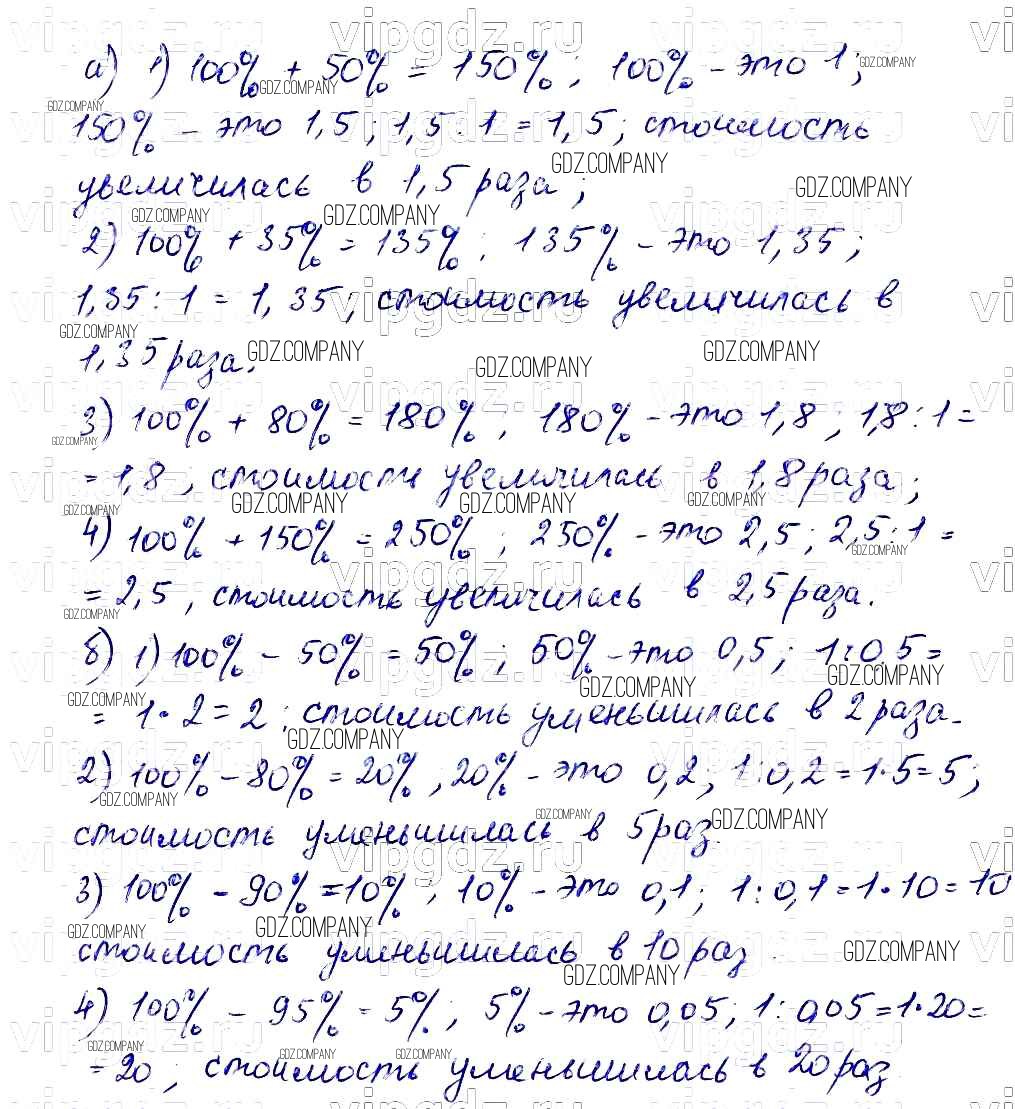 а) 1) 100% + 50% = 150%; 100% - это 1;
150% - это 1,5; 1,5 : 1 = 1,5; стоимость
увеличилась в 1,5 раза;
2) 100% + 35% = 135%; 135% - это 1,35;
1,35 : 1 = 1,35; стоимость увеличилась в
1,35 раза.
3) 100% + 80% = 180%; 180% - это 1,8; 1,8 : 1 =
= 1,8; стоимость увеличилась в 1,8 раза;
4) 100% + 150% = 250%; 250% - это 2,5; 2,5 : 1 =
= 2,5, стоимость увеличилась в 2,5 раза.
б) 1) 100% - 50% = 50%; 50% - это 0,5; 1 : 0,5 =
= 1 · 2 = 2; стоимость уменьшилась в 2 раза.
2) 100% - 80% = 20%, 20% - это 0,2; 1 : 0,2 = 1 · 5 = 5;
стоимость уменьшилась в 5 раз.
3) 100% - 90% = 10%; 10% - это 0,1; 1 : 0,1 = 1 · 10 = 10
стоимость уменьшилась в 10 раз.
4) 100% - 95% = 5%; 5% - это 0,05; 1 : 0,05 = 1 · 20 =
= 20; стоимость уменьшилась в 20 раз
vipgdz.ru
GDZ.COMPANY